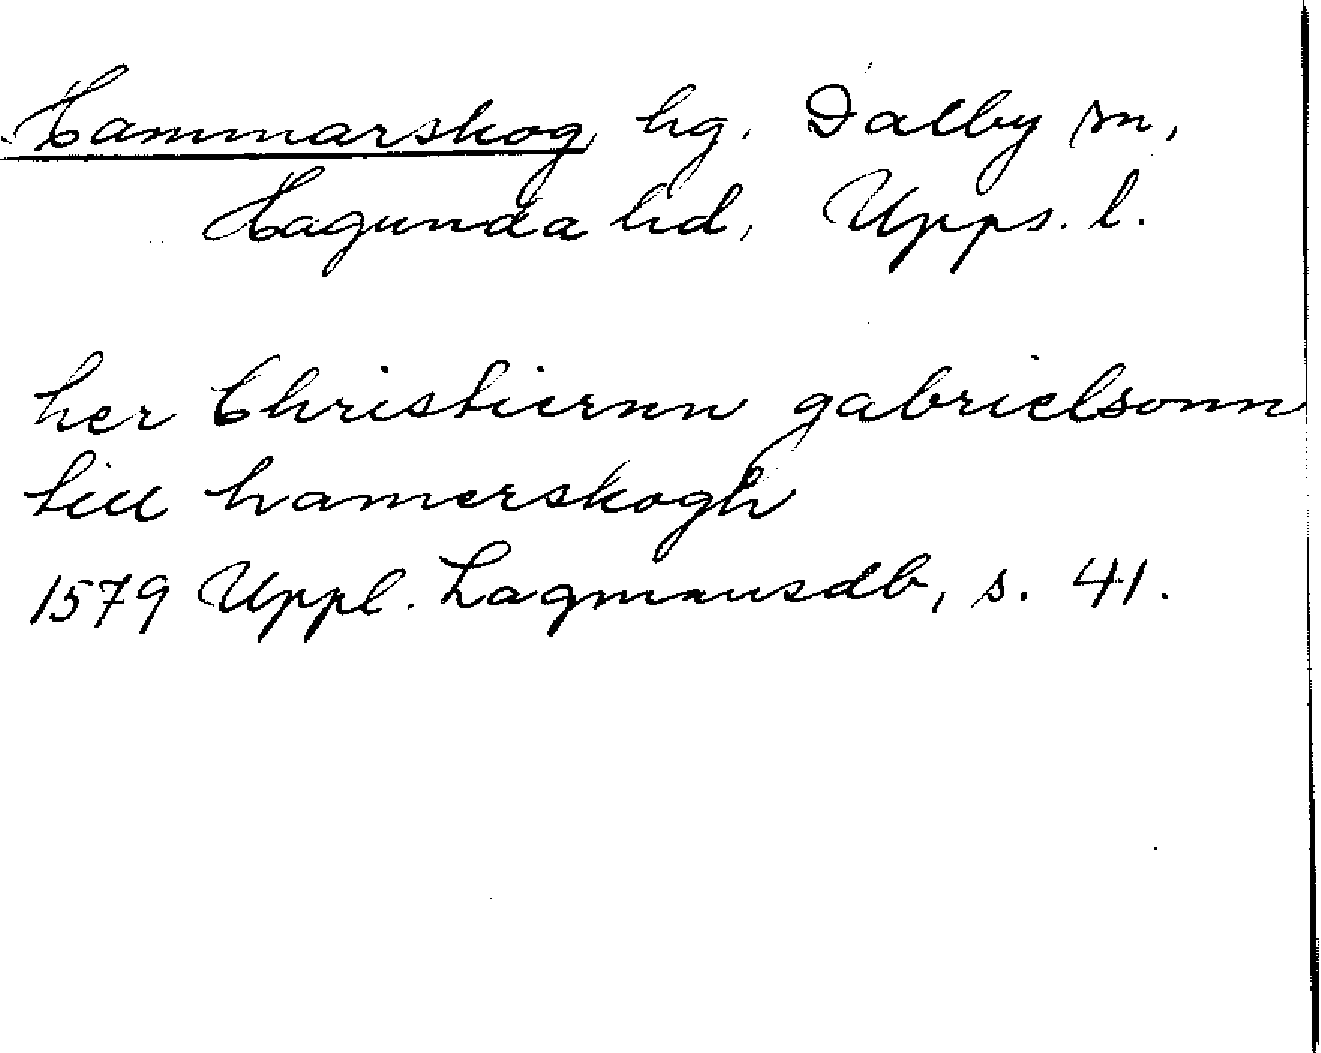 Hammarskog, hg. Dalby sn,
Hagunda hd, Upps. l.
her Christiernn gabrielsonn
till hamerskogh
1579 Uppl. Lagmansdb, s. 41.